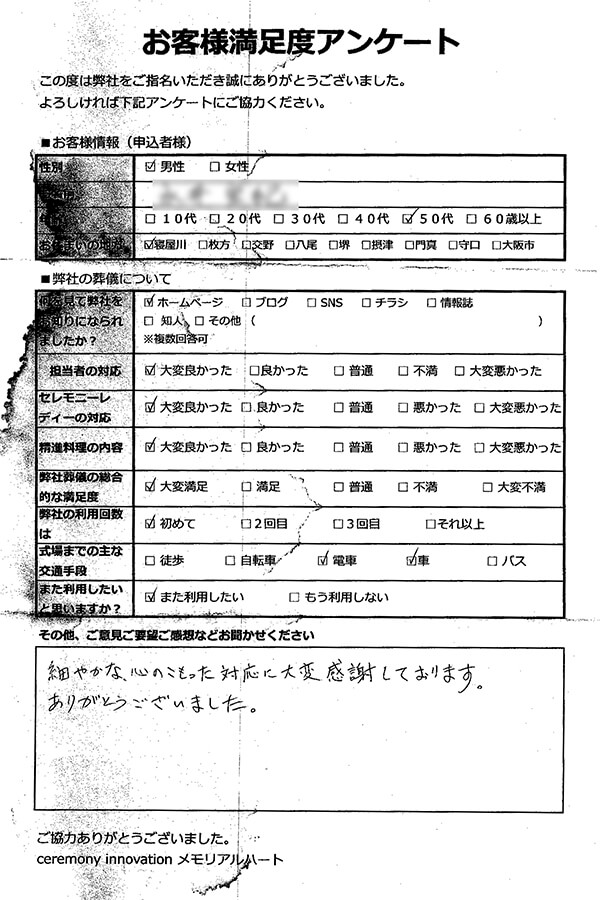 お客様満足度アンケート
この度は弊社をご指名いただき誠にありがとうございました。
よろしければ下記アンケートにご協力ください。
■お客様情報（申込者様）
性別 ☑男性 □女性
□10代 □20代 □30代 □40代 ☑50代 □60歳以上
お住まいの地域 ☑寝屋川 □枚方 □交野 □八尾 □堺 □摂津 □門真 □守口 □大阪市
■弊社の葬儀について
何を見て弊社を
お知りになられ
ましたか？
☑ホームページ □ブログ □SNS □チラシ □情報誌
□知人 □その他（ ）
※複数回答可
担当者の対応 ☑大変良かった □良かった □普通 □不満 □大変悪かった
セレモニーレ
ディーの対応
☑大変良かった □良かった □普通 □悪かった □大変悪かった
精進料理の内容 ☑大変良かった □良かった □普通 □悪かった □大変悪かった
弊社葬儀の総合
的な満足度
☑大変満足 □満足 □普通 □不満 □大変不満
弊社の利用回数
は
☑初めて □2回目 □3回目 □それ以上
式場までの主な
交通手段
□徒歩 □自転車 ☑電車 ☑車 □バス
また利用したい
と思いますか？
☑また利用したい □もう利用しない
その他、ご意見ご要望ご感想などお聞かせください
細やかな、心のこもった対応に大変感謝しております。
ありがとうございました。
ご協力ありがとうございました。
ceremony innovation メモリアルハート